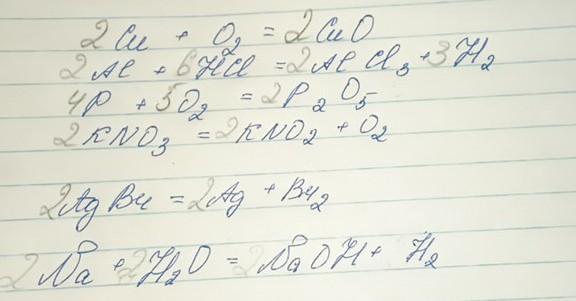 2Cu + O₂ = 2CuO
2Al + 6HCl = 2AlCl₃ + 3H₂
4P + 5O₂ = 2P₂O₅
2KNO₃ = 2KNO₂ + O₂
2AgBr = 2Ag + Br₂
2Na + 2H₂O = 2NaOH + H₂